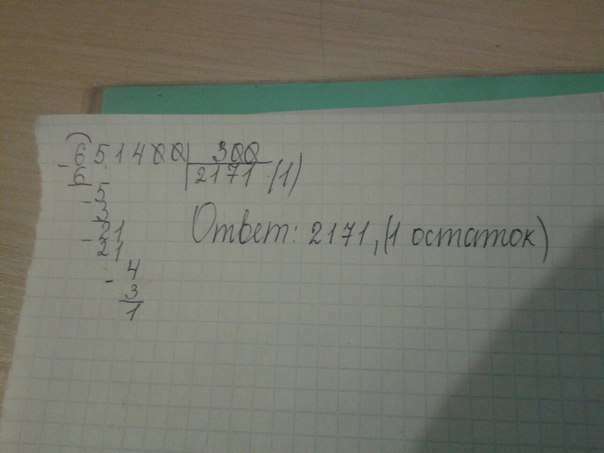 651400 300
- 6 2171 (1)
- 5
3
- 21
21
- 4
3
1
Ответ: 2171, (1 остаток)